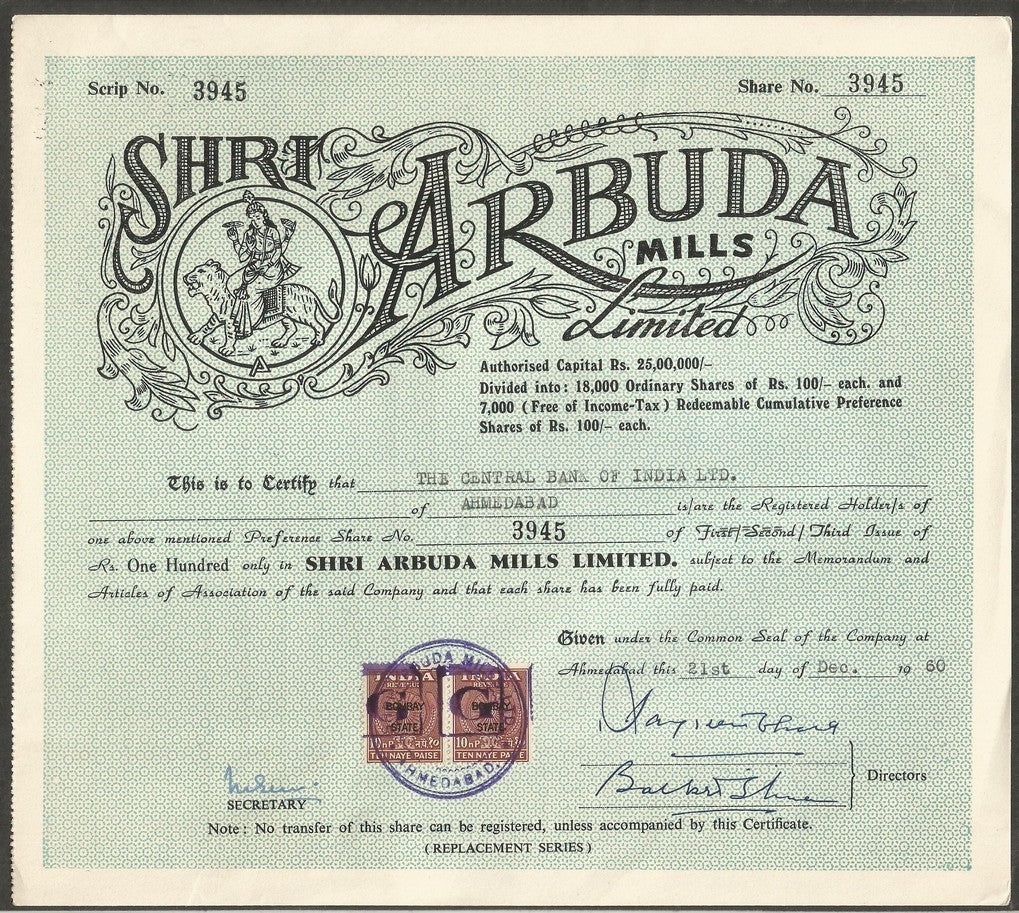 Scrip No. 3945
Share No. 3945
SHRI ARBUDA
MILLS
Limited
Authorised Capital Rs. 25,00,000/-
Divided into: 18,000 Ordinary Shares of Rs. 100/- each. and
7,000 ( Free of Income-Tax ) Redeemable Cumulative Preference
Shares of Rs. 100/- each.
This is to Certify that THE CENTRAL BANK OF INDIA LTD.
of AHMEDABAD is/are the Registered Holder/s of
one above mentioned Preference Share No. 3945 of First/Second/Third Issue of
Rs. One Hundred only in SHRI ARBUDA MILLS LIMITED. subject to the Memorandum and
Articles of Association of the said Company and that each share has been fully paid.
Given under the Common Seal of the Company at
Ahmedabad this 21st day of Dec. 19 60
INDIA INDIA
REVENUE REVENUE
G G
BOMBAY STATE BOMBAY STATE
10 nP 10 nP
TEN NAYE PAISE TEN NAYE PAISE
AHMEDABAD.
Directors
SECRETARY
Note : No transfer of this share can be registered, unless accompanied by this Certificate.
( REPLACEMENT SERIES )